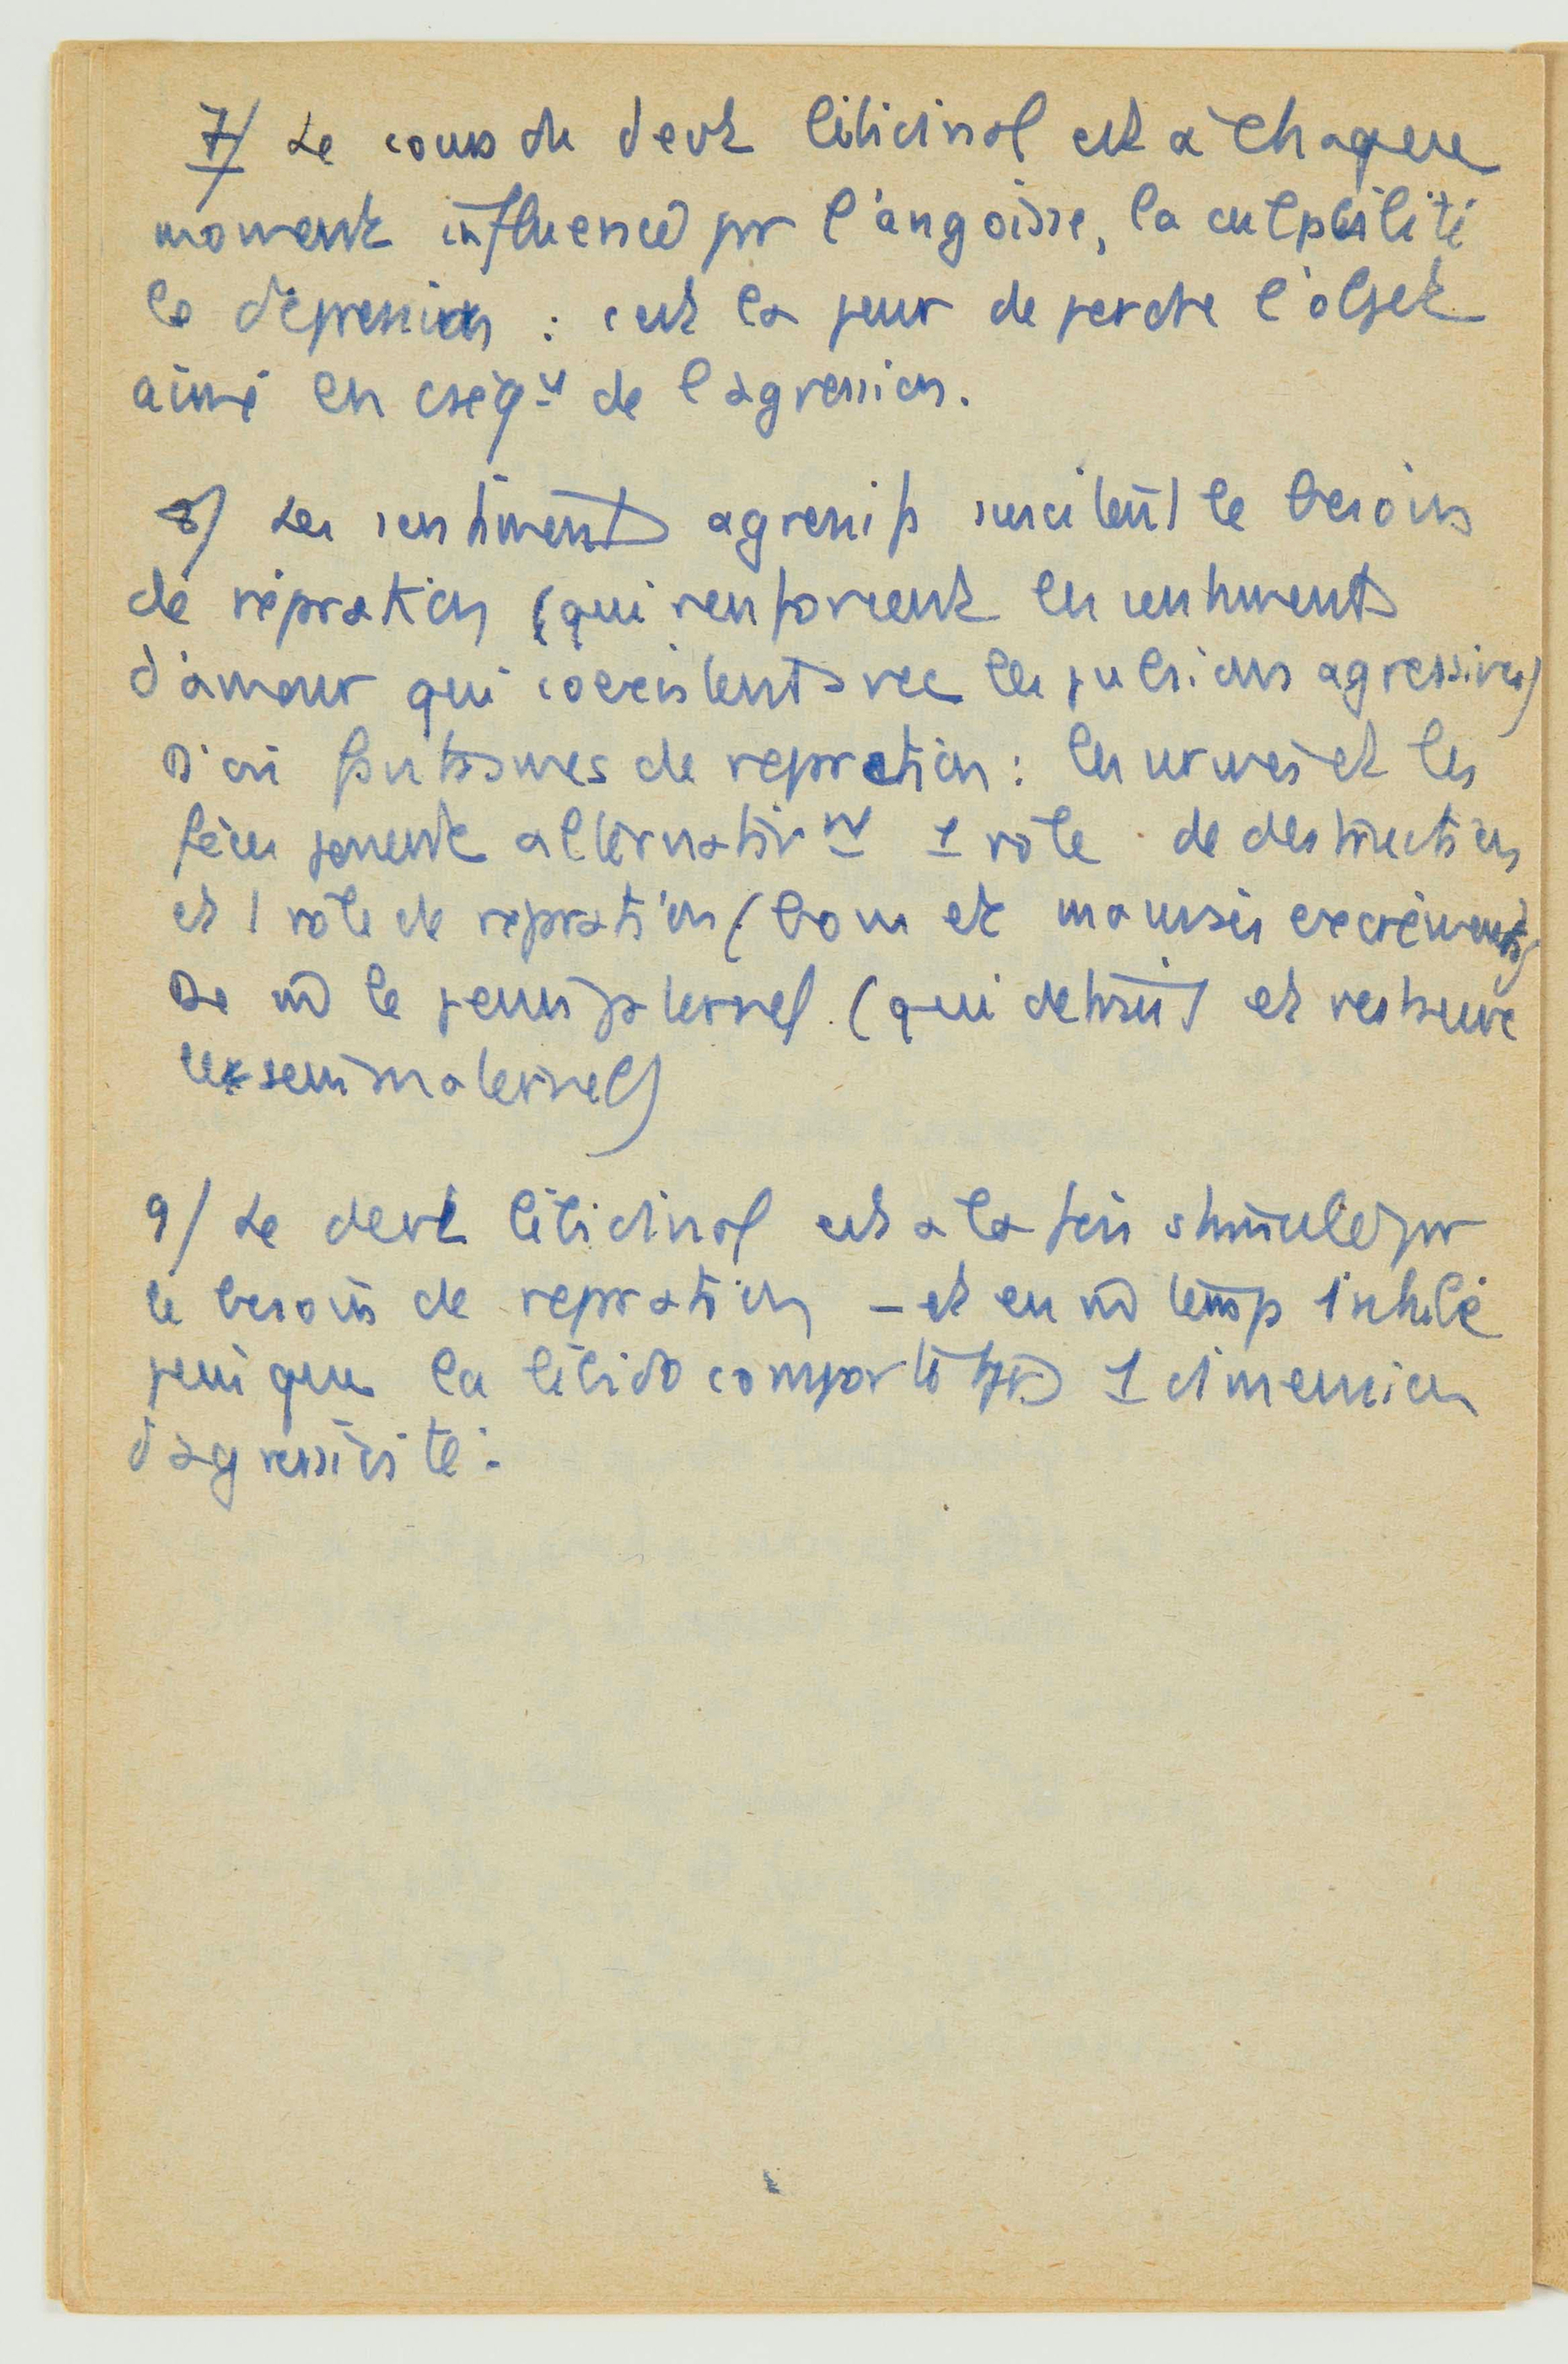 7/ Le cours du devt libidinal est à chaque
moment influencé par l'angoisse, la culpabilité
la dépression : c'est la peur de perdre l'objet
aimé en cséq de l'agression.
8/ Les sentiments agressifs suscitent le besoin
de réparation (qui renforcent les sentiments
d'amour qui coexistent avec les pulsions agressives)
D'où fantasmes de reparation : les urines et les
fèces jouent alternativt 1 rôle de destruction
et 1 rôle de reparation (bons et mauvais excréments)
De m le penis paternel (qui detruit et restaure
le sein maternel)
9/ Le devt libidinal est a la fois stimulé par
le besoin de reparation – et en m temps inhibé
puisque la libido comporte tjrs 1 dimension
d'agressivité.